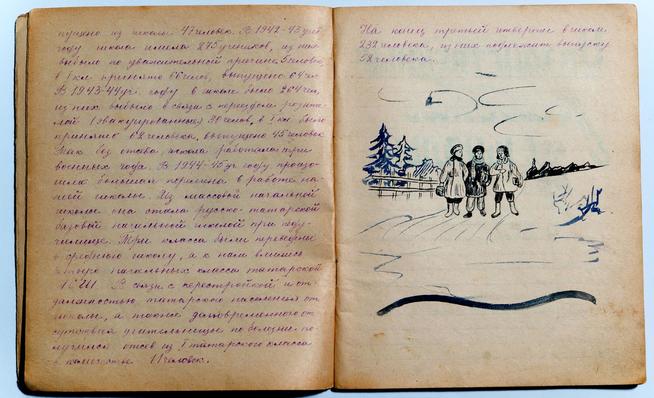 пущено из школы 47 человек. В 1942-43 учеб.
году школа имела 275 учеников, из них
выбыло по уважительной причине 5 человек
в I кл. принято 66 челов., выпущено 64 чел.
В 1943-44 уч. году в школе было 264 чел,
из них выбыло в связи с переездом родите-
лей (эвакуированных) 30 челов, в I кл. было
принято 62 человека, выпущено 45 человек
Так без отсева школа работала три
военных года. В 1944-45 уг году произо-
шла большая перемена в работе на-
шей школы. Из массовой начальной
школы она стала русско-татарской
базовой начальной школой при педу-
чилище. Три класса были переведены
в среднюю школу, а к нам влились
четыре начальных класса татарской
В связи с перестройкой и от
дальностью татарского населения от
школы, а также долговременного от
сутствия учительницы по болезни по
лучился отсев из I татарского класса
в количестве 11 человек.
На конец третьей четверти в школе
232 человека, из них подлежит выпуску
52 человека.